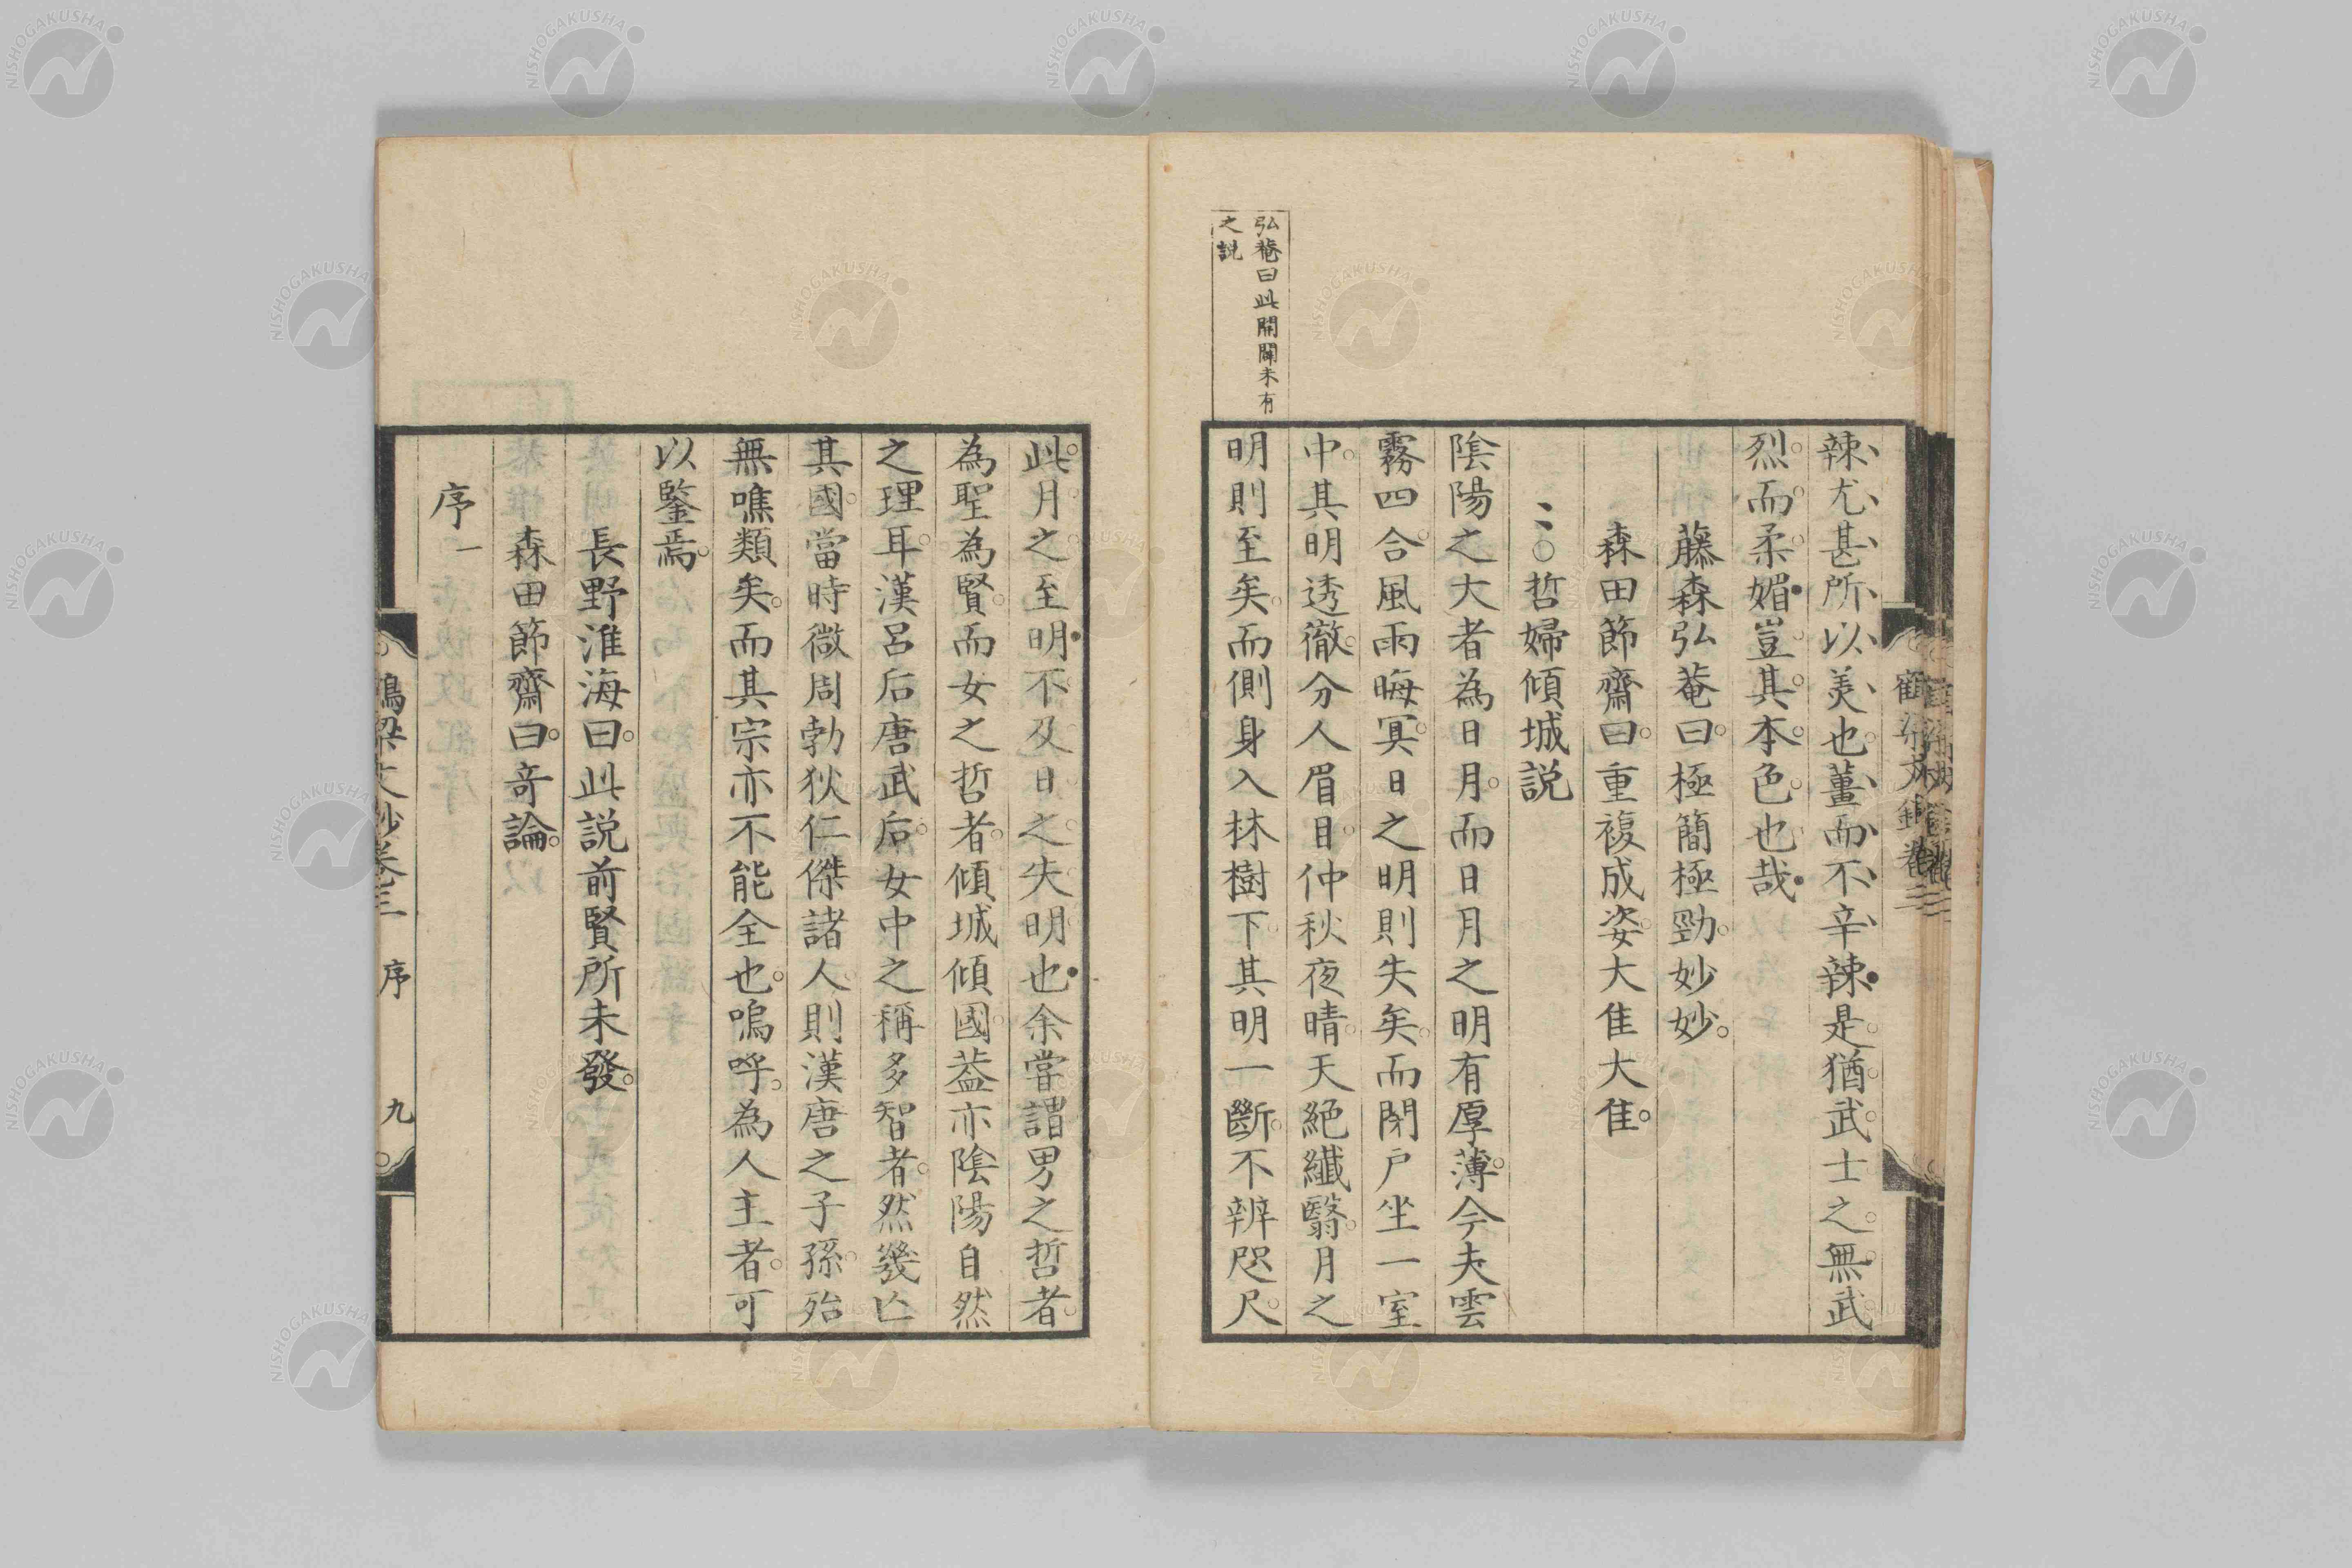 弘菴曰此開闢未有
之説
辣尤甚所以美也薑而不辛辣是猶武士之無武
烈而柔媚豈其本色也哉
藤森弘菴曰極簡極勁妙妙
森田節齋曰重複成姿大佳大佳
〻○哲婦傾城説
陰陽之大者為日月而日月之明有厚薄今夫雲
霧四合風雨晦冥日之明則失矣而閉戸坐一室
中其明透徹分人眉目仲秋夜晴天絶纖翳月之
明則至矣而側身入林樹下其明一斷不辨咫尺
此月之至明不及日之失明也余嘗謂男之哲者
為聖為賢而女之哲者傾城傾國葢亦陰陽自然
之理耳漢呂后唐武后女中之稱多智者然幾亡
其國當時微周勃狄仁傑諸人則漢唐之子孫殆
無噍類矣而其宗亦不能全也嗚呼為人主者可
以鑒焉
長野淮海曰此説前賢所未發
森田節齋曰奇論
序一
鳴梁文鈔卷三 序 九
NISHOGAKUSHA